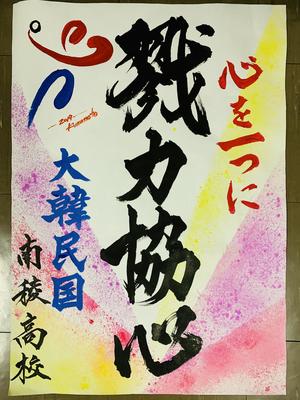 心を一つに
戮力協心
大韓民国
南稜高校
-2019-
Kumamoto